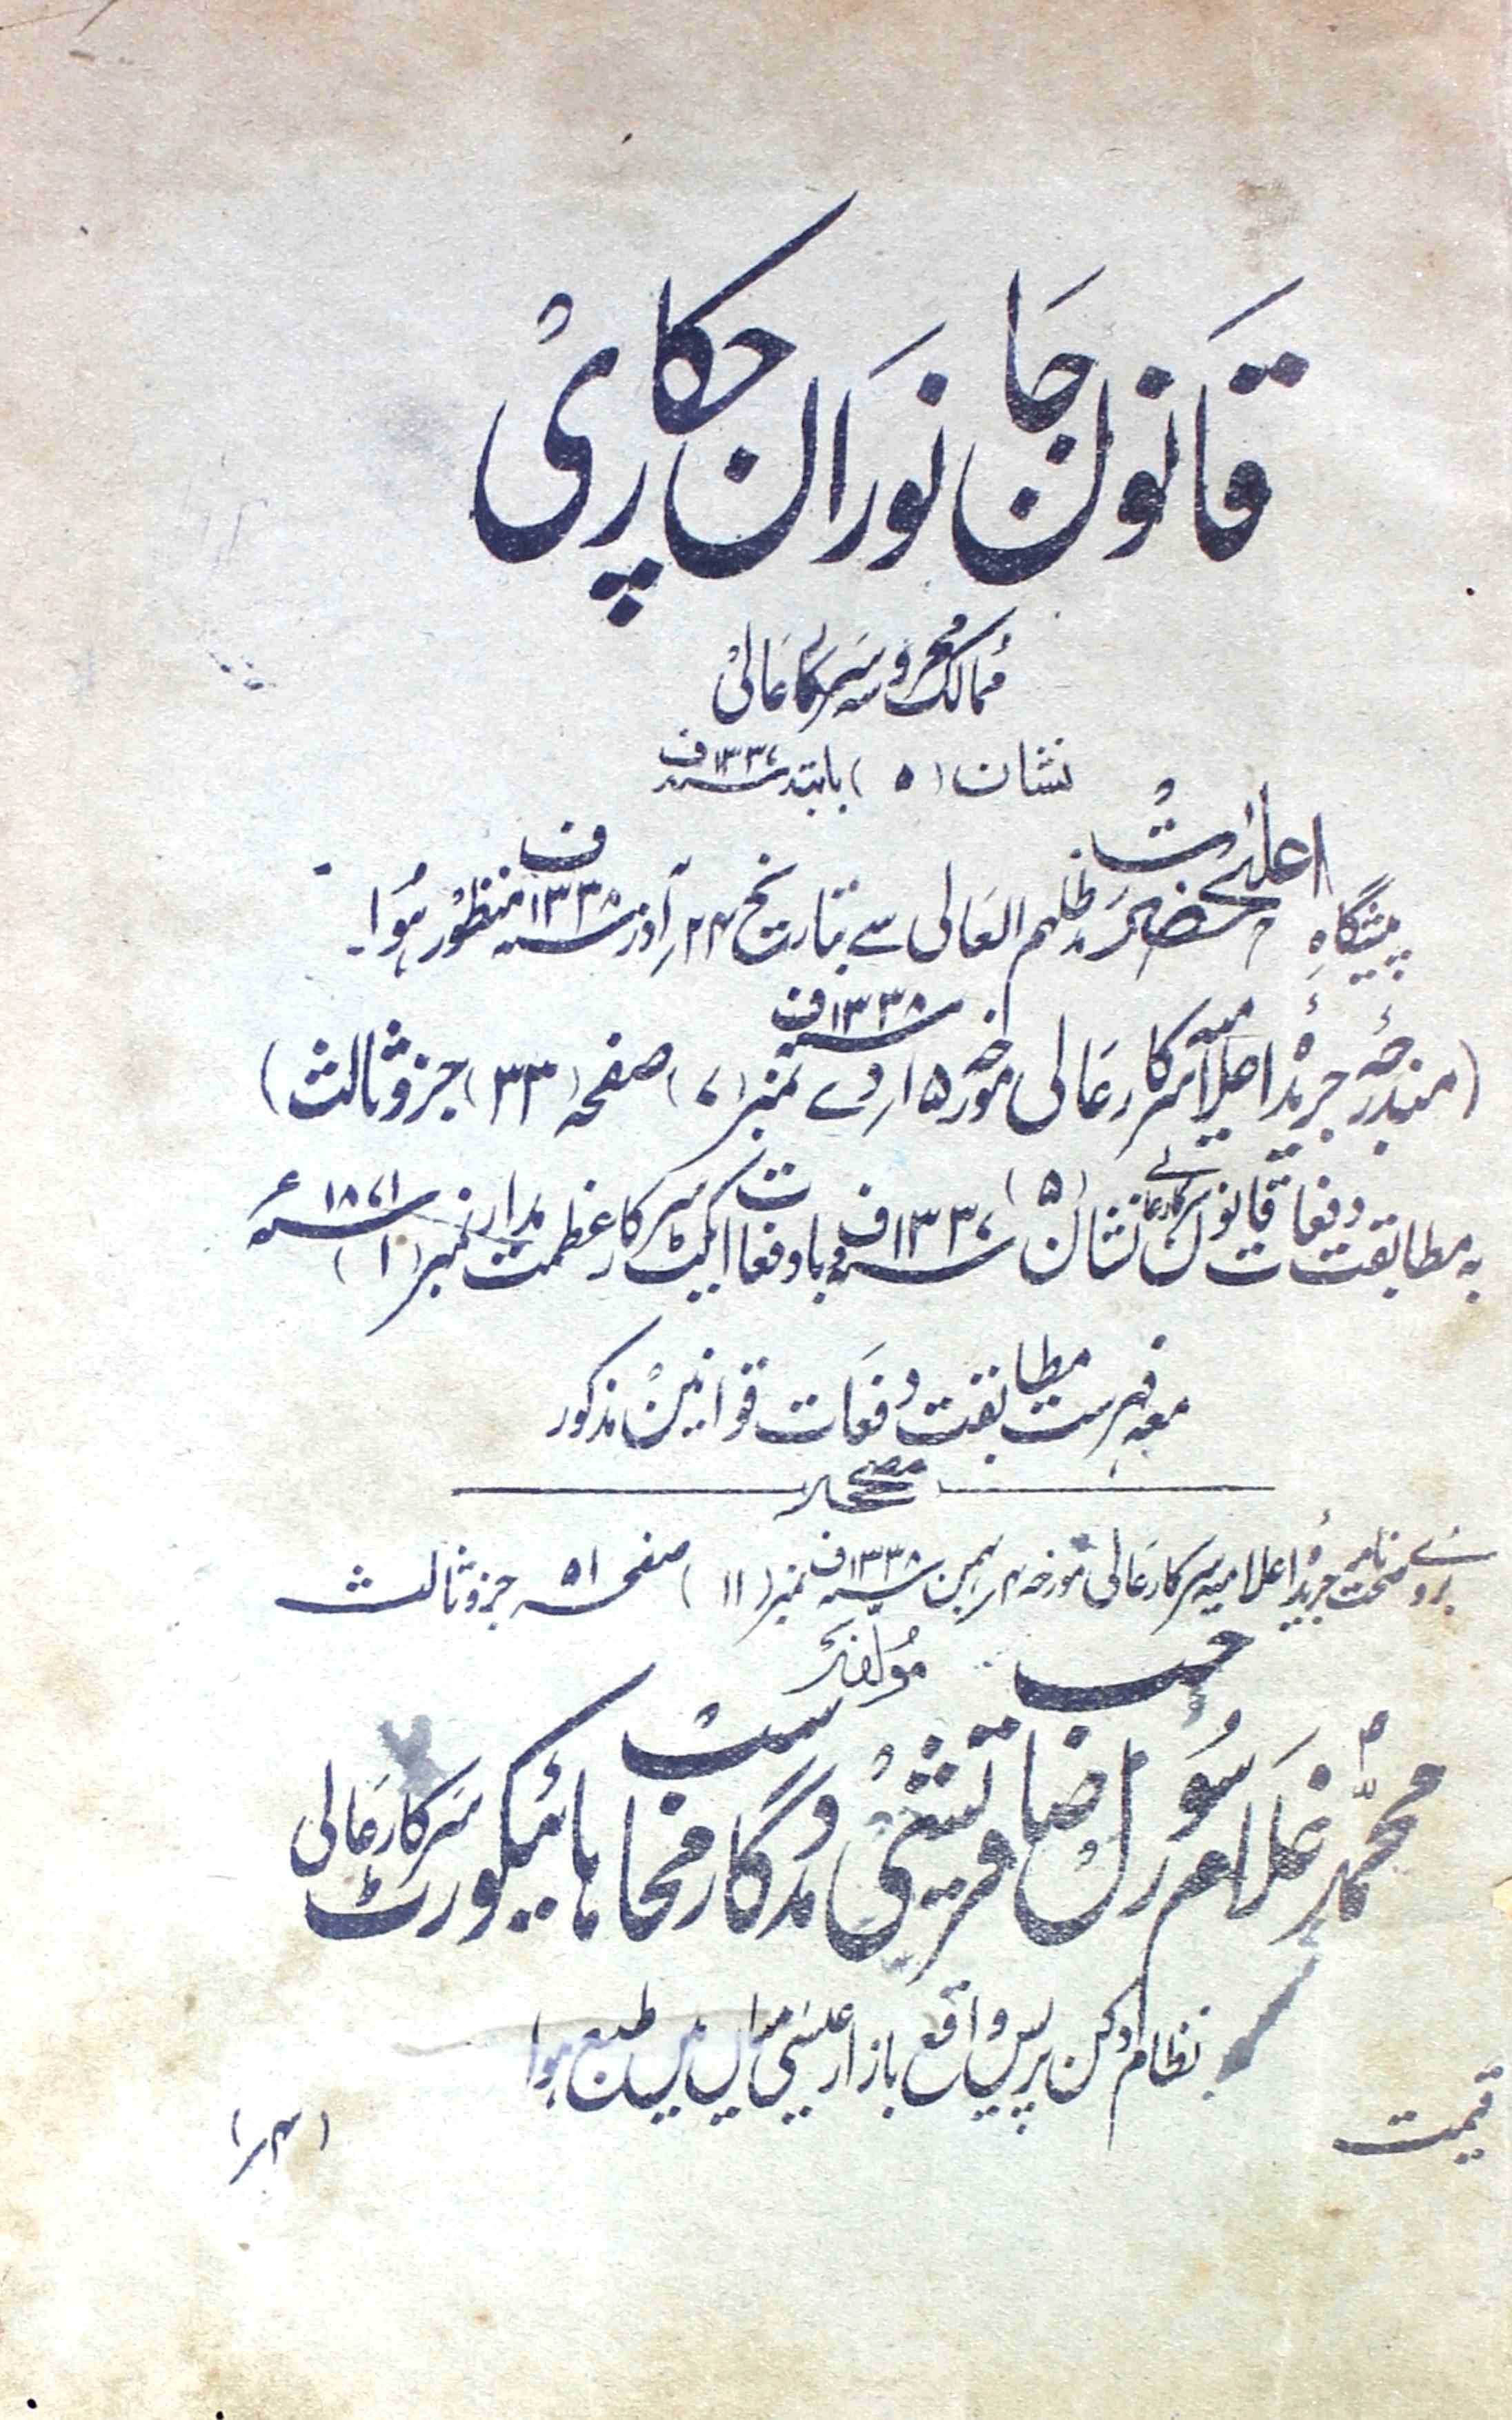 قانون جانوران چکاپری
ممالک محروسہ سرکار عالی
نشان (۵) بابتہ سنہ ۱۳۳۷ ف
پیشگاہِ اعلیٰحضرت مدظلہم العالی سے بتاریخ ۲۴ آذر سنہ ۱۳۳۸ ف منظور ہُوا۔
(مندرجہ جریدۂ اعلامیہ سرکار عالی مورخہ ۱۵؍دے سنہ ۱۳۳۸ ف نمبر (۷) صفحہ (۳۳) جزو ثالث)
بہ مطابقت دفعات قانون سرکار عالی نشان (۵) سنہ ۱۳۳۷ ف و با دفعات ایکٹ سرکار عظمت مدار نمبر (۱) سنہ ۱۸۷۱ ء
معہ فہرست مطابقت دفعات قوانین مذکور
مصححہ
بروئے صحت نامہ جریدۂ اعلامیہ سرکار عالی مورخہ ۴؍بہمن سنہ ۱۳۳۸ ف نمبر (۱۱) صفحہ ۵۱ جزو ثالث
مؤلفہ
محمد غلام رسول صاحب قریشی مددگار منجانب ہائیکورٹ سرکار عالی
نظام دکن پریس واقع بازار عیسیٰ میاں میں طبع ہوا
قیمت (۴؍)